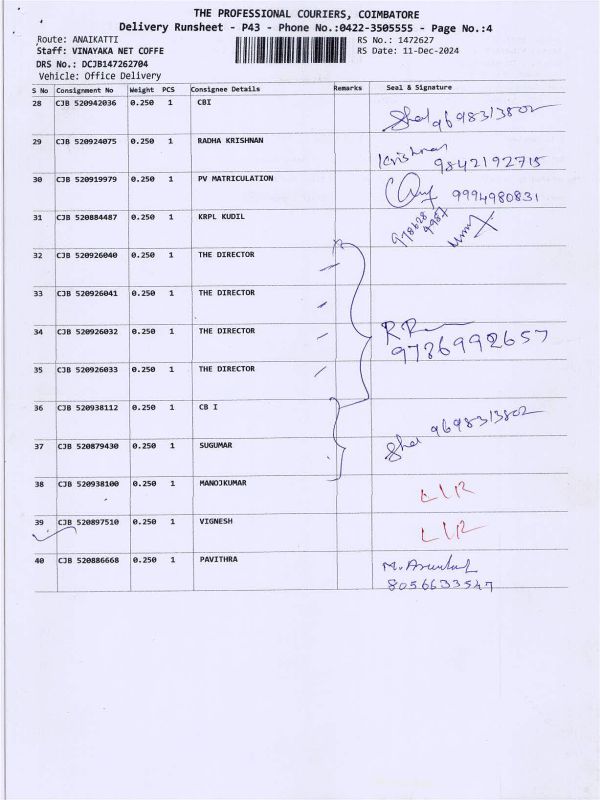 THE PROFESSIONAL COURIERS, COIMBATORE
Delivery Runsheet - P43 - Phone No.:0422-3505555 - Page No.:4
Route: ANAIKATTI RS No.: 1472627
Staff: VINAYAKA NET COFFE RS Date: 11-Dec-2024
DRS No.: DCJB147262704
Vehicle: Office Delivery
S No Consignment No Weight PCS Consignee Details Remarks Seal & Signature
28 CJB 520942036 0.250 1 CBI
9698313802
29 CJB 520924075 0.250 1 RADHA KRISHNAN
Krishnan 9842192715
30 CJB 520919979 0.250 1 PV MATRICULATION
9994980831
31 CJB 520884487 0.250 1 KRPL KUDIL
32 CJB 520926040 0.250 1 THE DIRECTOR
33 CJB 520926041 0.250 1 THE DIRECTOR
34 CJB 520926032 0.250 1 THE DIRECTOR
9786992657
35 CJB 520926033 0.250 1 THE DIRECTOR
36 CJB 520938112 0.250 1 CB I
9698313802
37 CJB 520879430 0.250 1 SUGUMAR
38 CJB 520938100 0.250 1 MANOJKUMAR
39 CJB 520897510 0.250 1 VIGNESH
40 CJB 520886668 0.250 1 PAVITHRA
8056633547